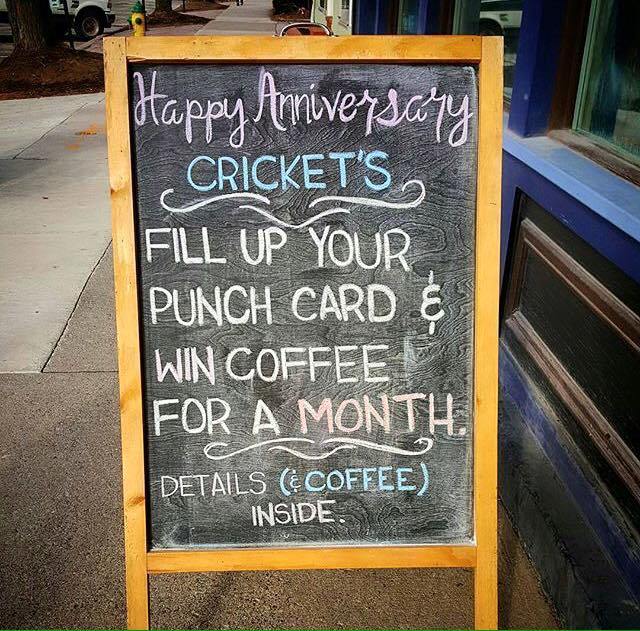 Happy Anniversary
CRICKET'S
FILL UP YOUR
PUNCH CARD &
WIN COFFEE
FOR A MONTH.
DETAILS (& COFFEE)
INSIDE.